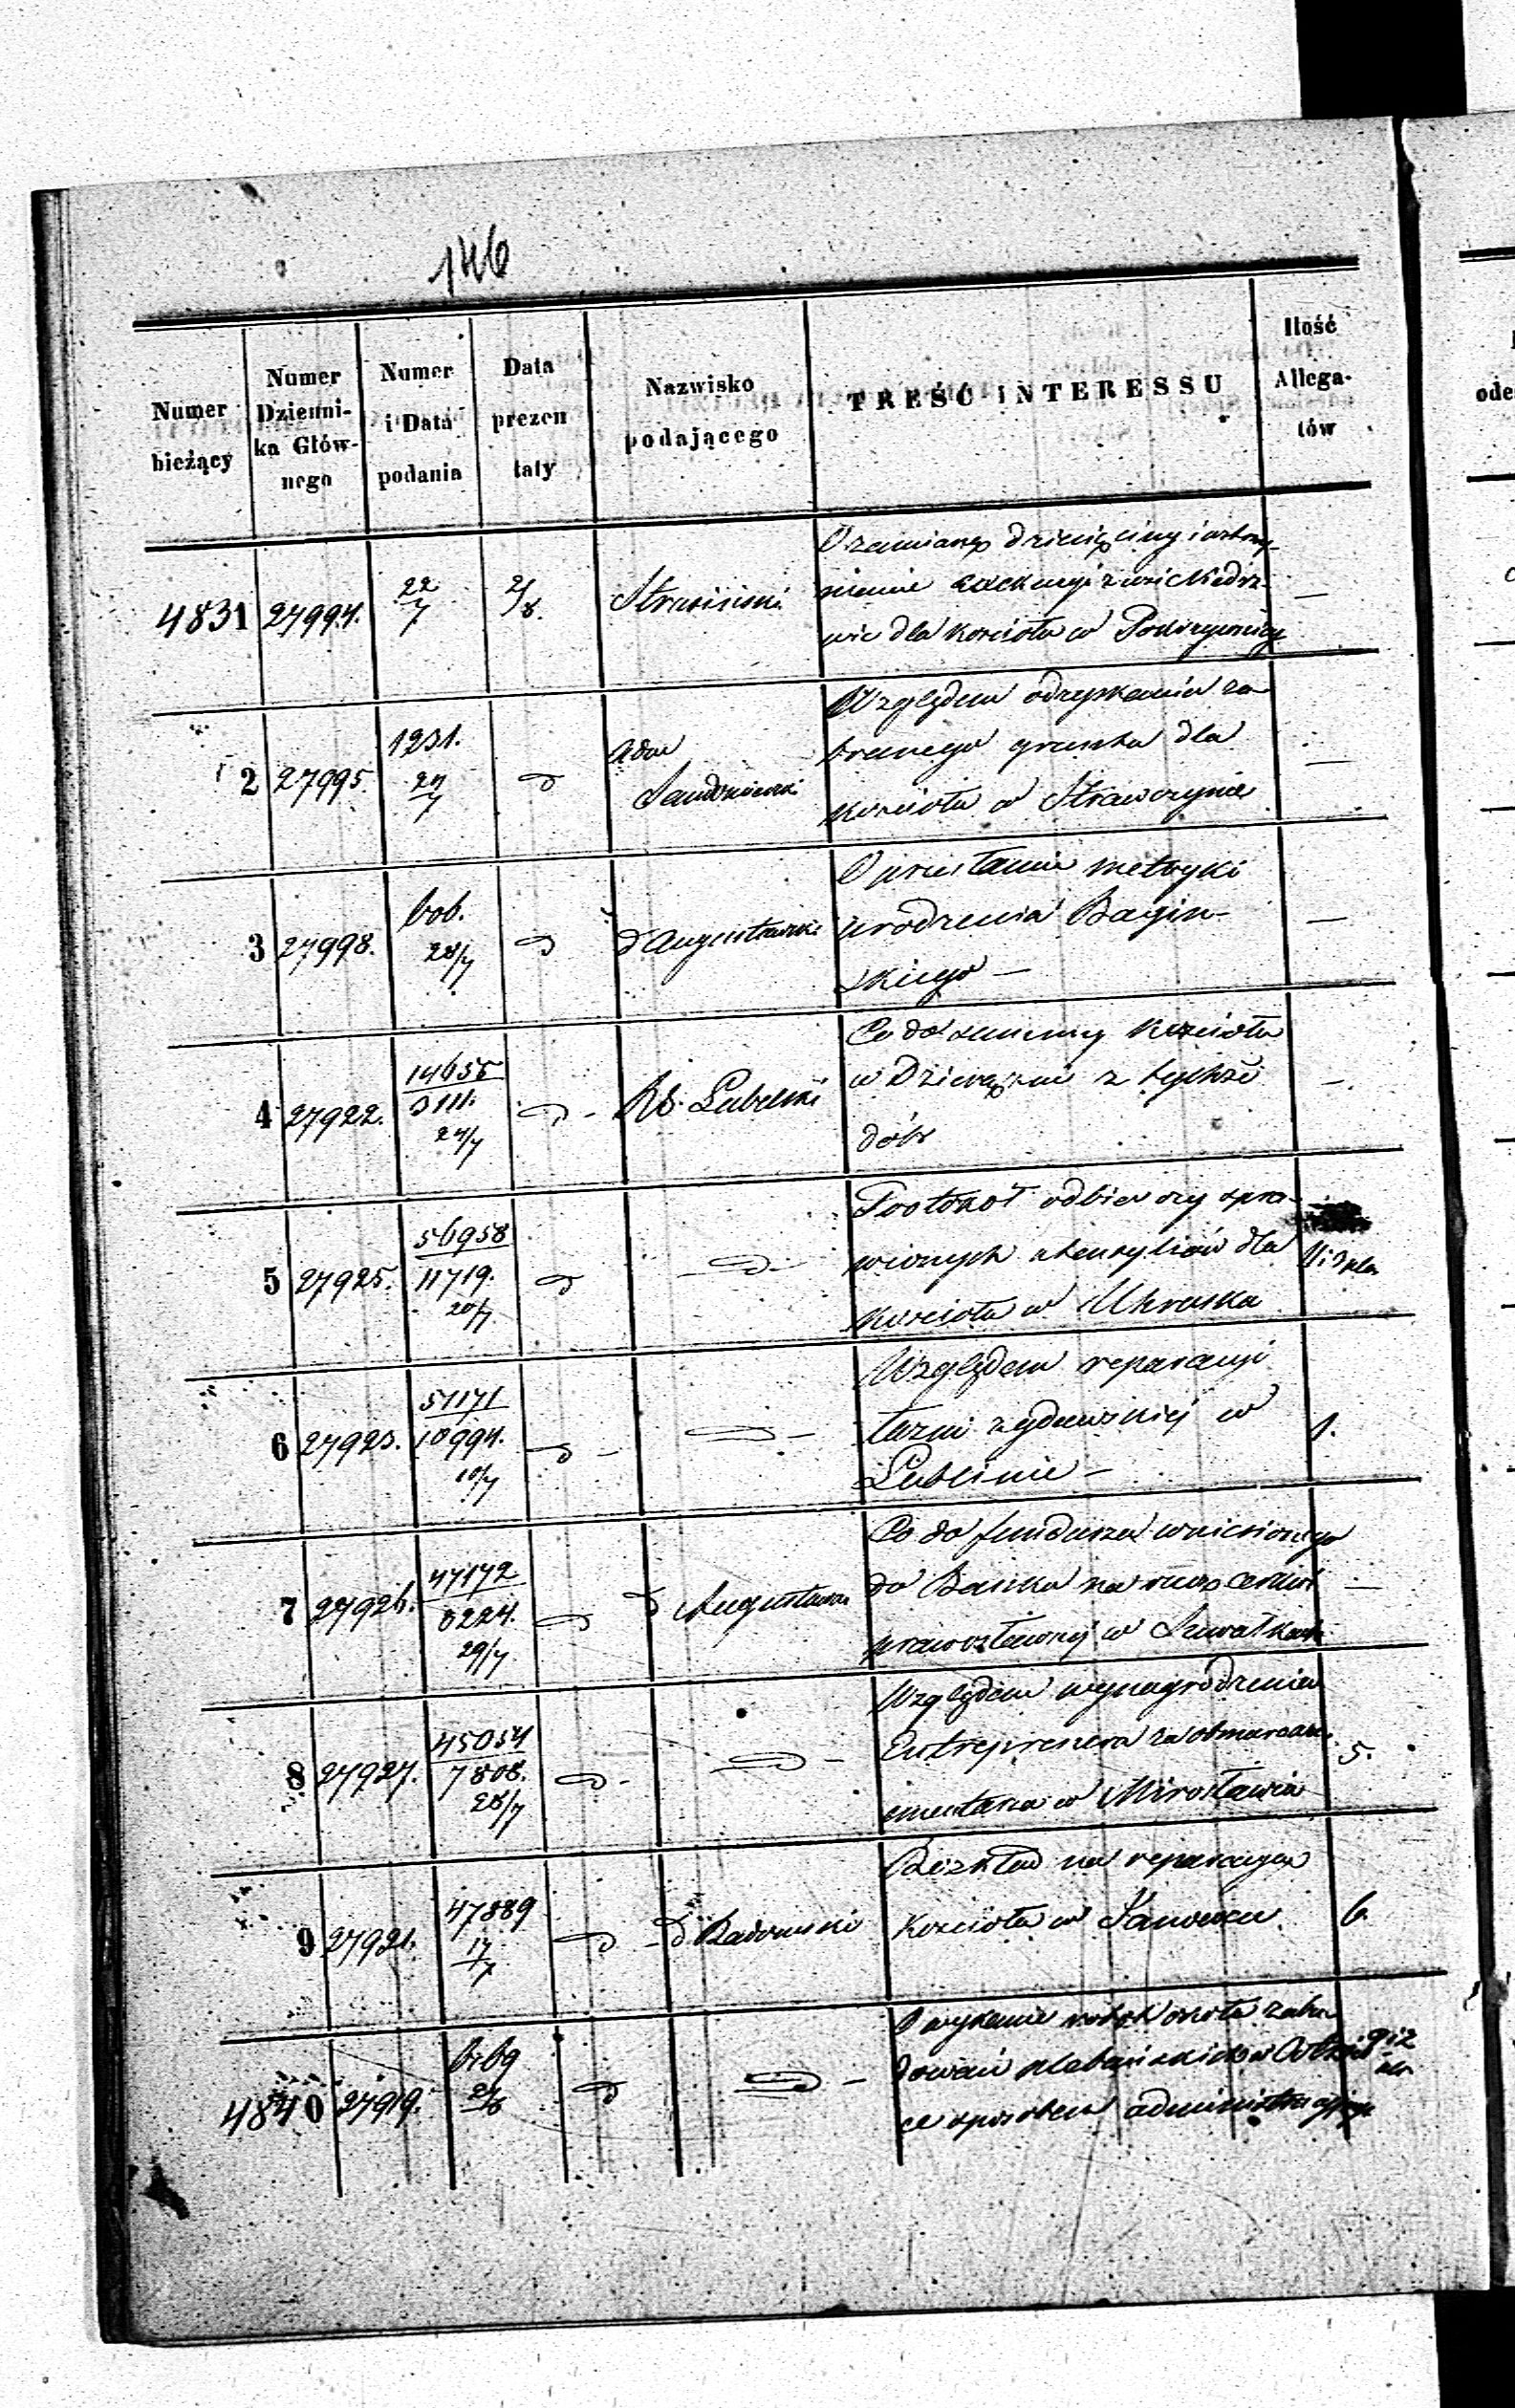 146
Numer bieżący
Numer Dzienni-ka Głów-nego
Numer i Data podania
Data prezen taty
Nazwisko podającego
TREŚĆ INTERESSU
Ilość Allega-tów
4831 27994. 22/7 2/8. Strasiński
O zamianę dziesięciny i wstrzy-
manie
dla kościoła w
2 27995. 1231. 27/7 d Adm Sandomierski
Względem odzyskania za-
branego gruntu dla
kościoła w Strawczynie
3 27998. 606. 28/7 d d Augustowski
O przesłanie metryki
urodzenia Bagiń-
skiego —
4 27922. 14655/3111. 24/7 d - Rb. Lubelski
Co do summy kościoła
w Dzierążni z tychże
dóbr
5 27925. 56958/11719. 20/7 d — d —
Protokół odbiorczy spra-
wionych utensyliów dla
kościoła w Uhruska
6 27923. 51171/10994. 10/7 d - d —
Względem reparacyi
łazni żydowskiej w 1.
Lublinie —
7 27926. 47172/8224. 29/7 d d Augustowski
Co do funduszu wniesionego
do Banku na rzecz cerkwi —
prawosławnej w Suwałkach
8 27927. 45054/7808. 28/7 d - d —
Względem wynagrodzenia
Entreprenera za obmurowanie 5.
cmentarza w Mirosławiu
9 27921. 47889 17/7 d - d Radomski
Rozkład na reparacyę
kościoła w Janowcu 6.
4840 27919. 6169 d d —
O wykonanie robót około zabu
dowań plebańskich w
ce sposobem administracyjnym